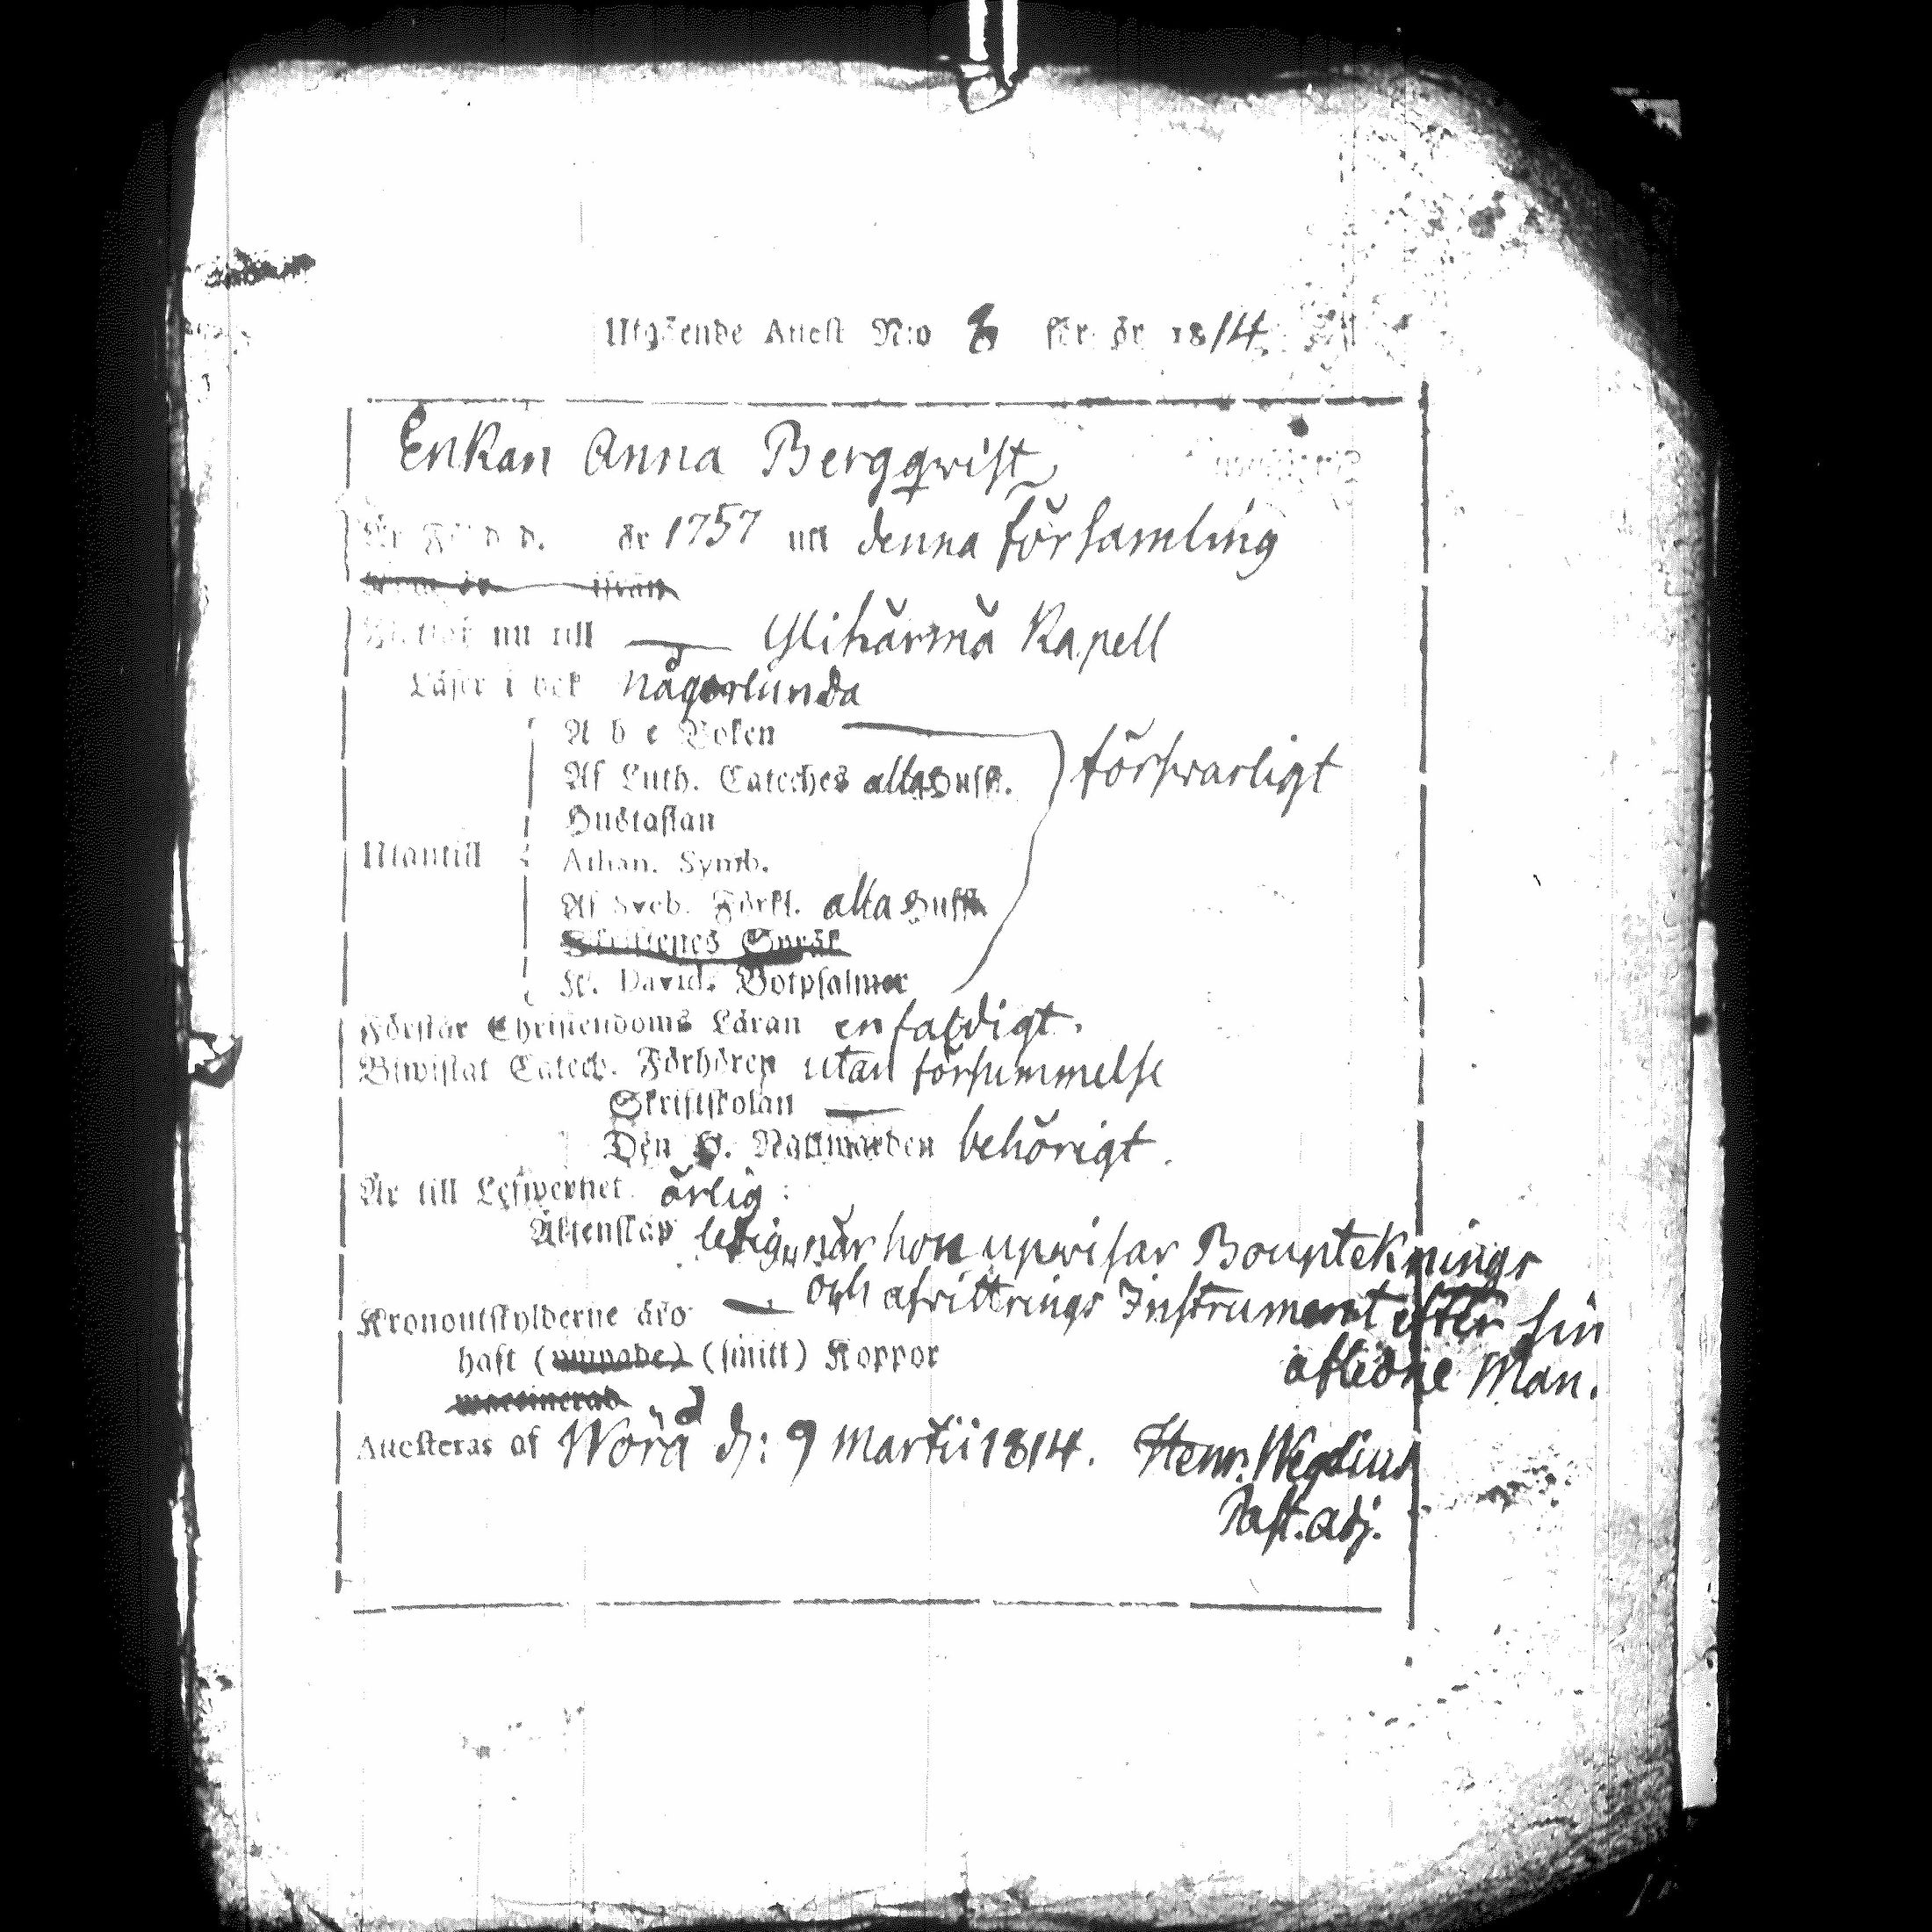 Utgående Attest N:o 8 för år 1814
Enkan Anna Bergqvist
Är Född d. år 1757 uti denna församling
ifrån
Flyttat nu till — Ylihärmä Kapell
Läser i bok någorlunda
A b c Boken — försvarligt
Af Luth. Cateches alla Husk.
Hustaflan
Utantill
Athan. Symb.
Af Sveb. Förkl. alla
Skriftenes Språk
K. David. Botpsalmer
Förstår Christendoms Läran enfaldigt.
Biwistat Catech. Förhören utan försummelse
Skriftskolan —
Den H. Nattwarden behörigt.
Är till Lefwernet ärlig
Äktenskap ledig, när hon upwisar Boupteknings
och afvittrings Instrument efter sin
Kronoutskylderne äro —
aflidne Man.
haft (smitt) Koppor
Attesteras af Wörå d: 9 Martii 1814. Henr. Wegelius
Past. adj.